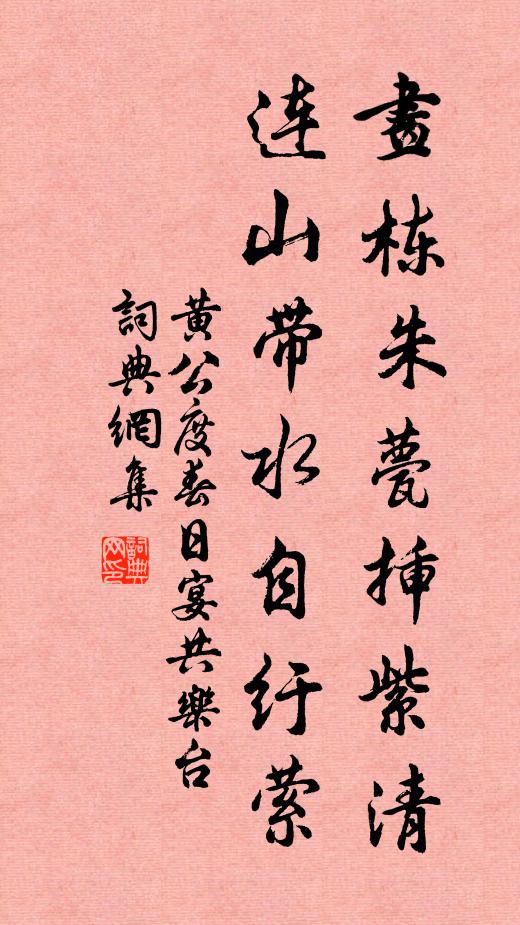 畫栋朱甍揷紫清
连山带水自纡萦
黄公度春日宴共樂台
詞典網集
詞典网印